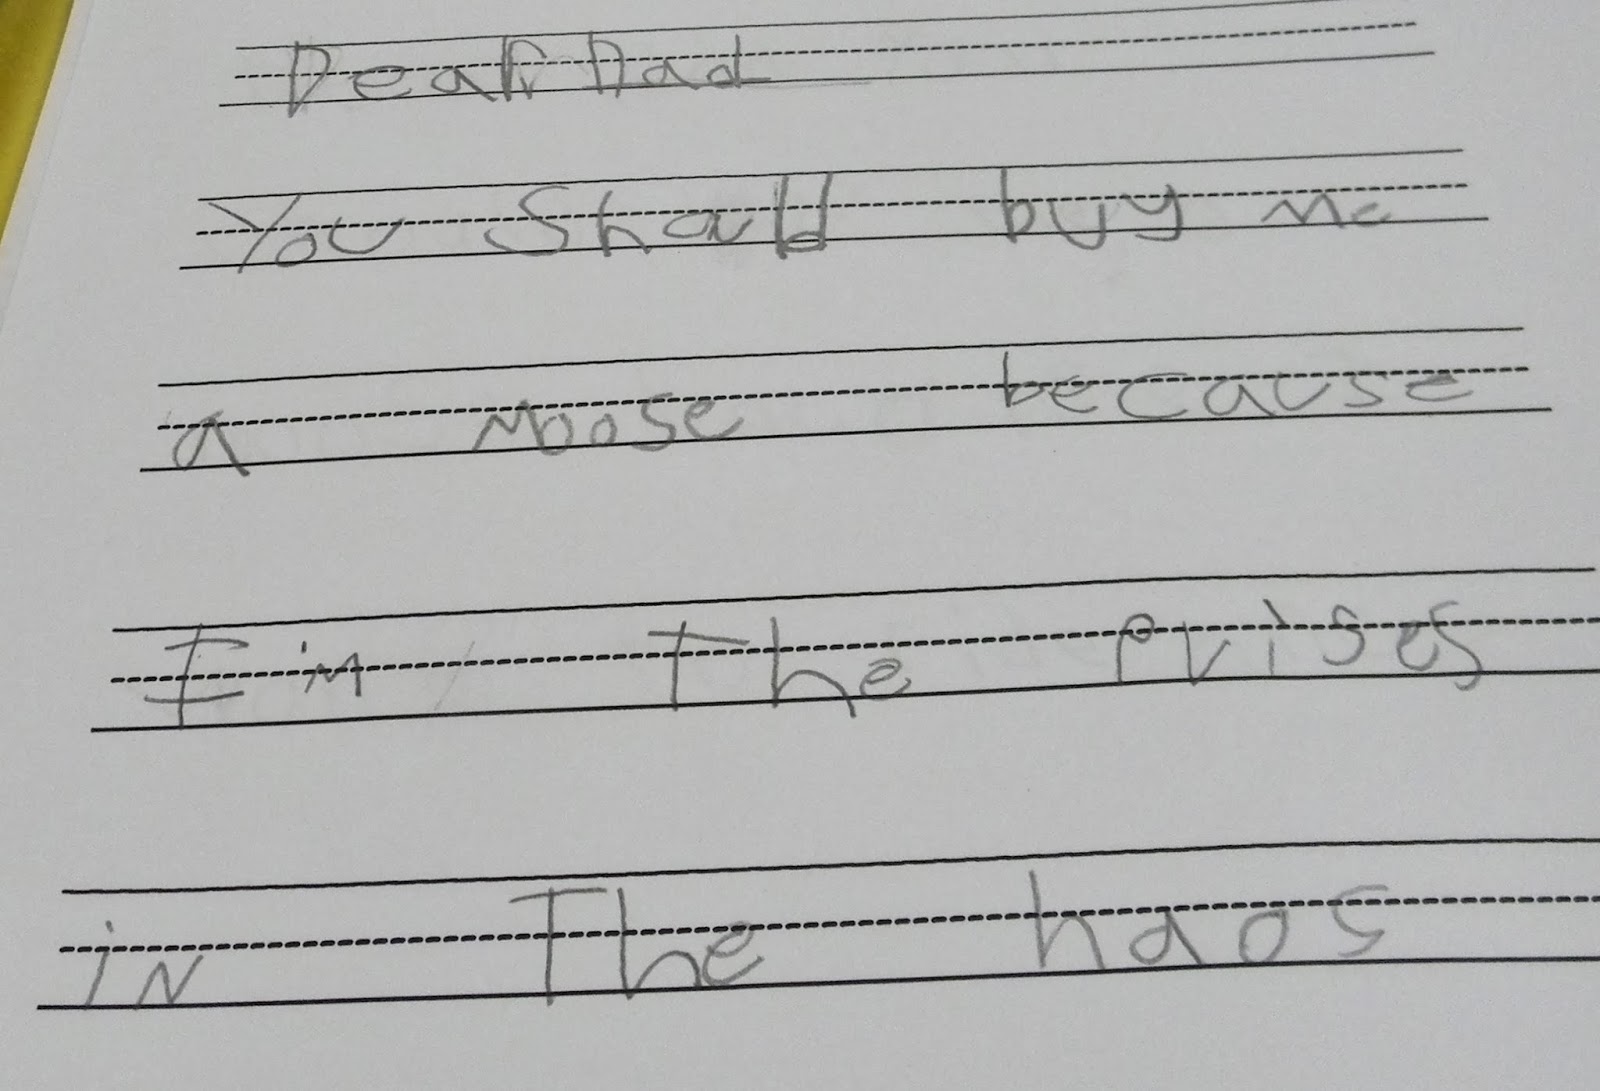 Dear Dad
You Should buy Me
a Moose because
I'm The Prises
in The haos